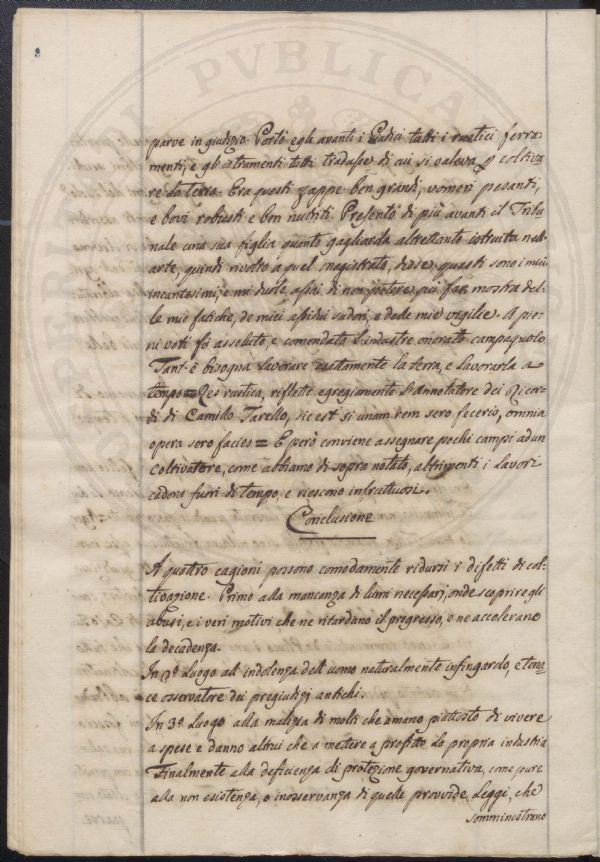 parve in giudizio. Portò egli avanti i Giudici tutti i rustici ferra-
menti, e gl'istrumenti tutti di cui si valeva p coltiva
re la terra. Era questi zappe ben grandi, vomeri pesanti,
e bovi robusti e ben nutriti. Presentò di più avanti il Tribu
nale una sua figlia quanto gagliarda altrettanto istruita nell'
arte, quindi rivolto a quel magistrato, disse: questi sono i miei
incantesimi, e mi duole assai di non potere più far mostra del-
le mie fatiche, de miei assidui sudori, e delle mie vigilie. A pie
ni voti fu assoluto, e comendato l'industre onorato campagnolo
Tant'è bisogna lavorare esattamente la terra, e lavorarla a
tempo = Res rustica, riflette egregiamente l'Annotatore dei Ricor-
di di Camillo Tarello, sic est si unam rem sero feceris, omnia
opera sero facies = E però conviene assegnare pochi campi ad un
coltivatore, come abbiamo di sopra notato, altrimenti i lavori
cadono fuori di tempo, e riescono infruttuosi.
Conclusione
A quattro cagioni possono comodamente ridursi i difetti di col-
tivazione. Primo alla mancanza di lumi necessari, onde scoprire gli
abusi, e i veri motivi che ne ritardano il progresso, e ne accelerano
la decadenza.
In 2º Luogo all'indolenza dell'uomo naturalmente infingardo, e tena-
ce osservatore dei pregiudizj antichi.
In 3º Luogo alla malizia di molti che amano piuttosto di vivere
a spese e danno altrui che a mettere a profitto la propria industria
Finalmente alla deficienza di protezione governativa, come pure
alla non esistenza, o inosservanza di quelle provvide Leggi, che
somministrano